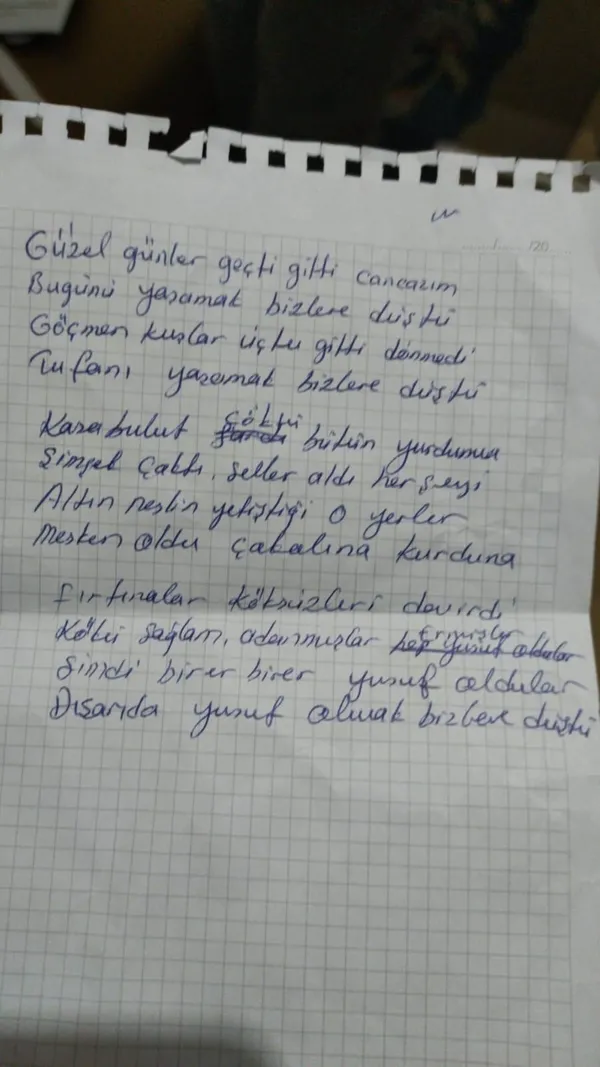 /20
Güzel günler geçti gitti cancazım
Bugünü yazamak bizlere düştü
Göçmen kuşlar uçtu gitti dönmedi
Tufanı yazamak bizlere düştü
Karabulut çöktü bütün yurduma
Şimşek çaktı, seller aldı her şeyi
Altın neslin yetiştiği o yerler
Mesken oldu çakalına kurduna
Fırtınalar köksüzleri devirdi
Kökü sağlam, adanmışlar ermişler
Şimdi birer birer yusuf oldular
Dışarıda yusuf olmak bizlere düştü